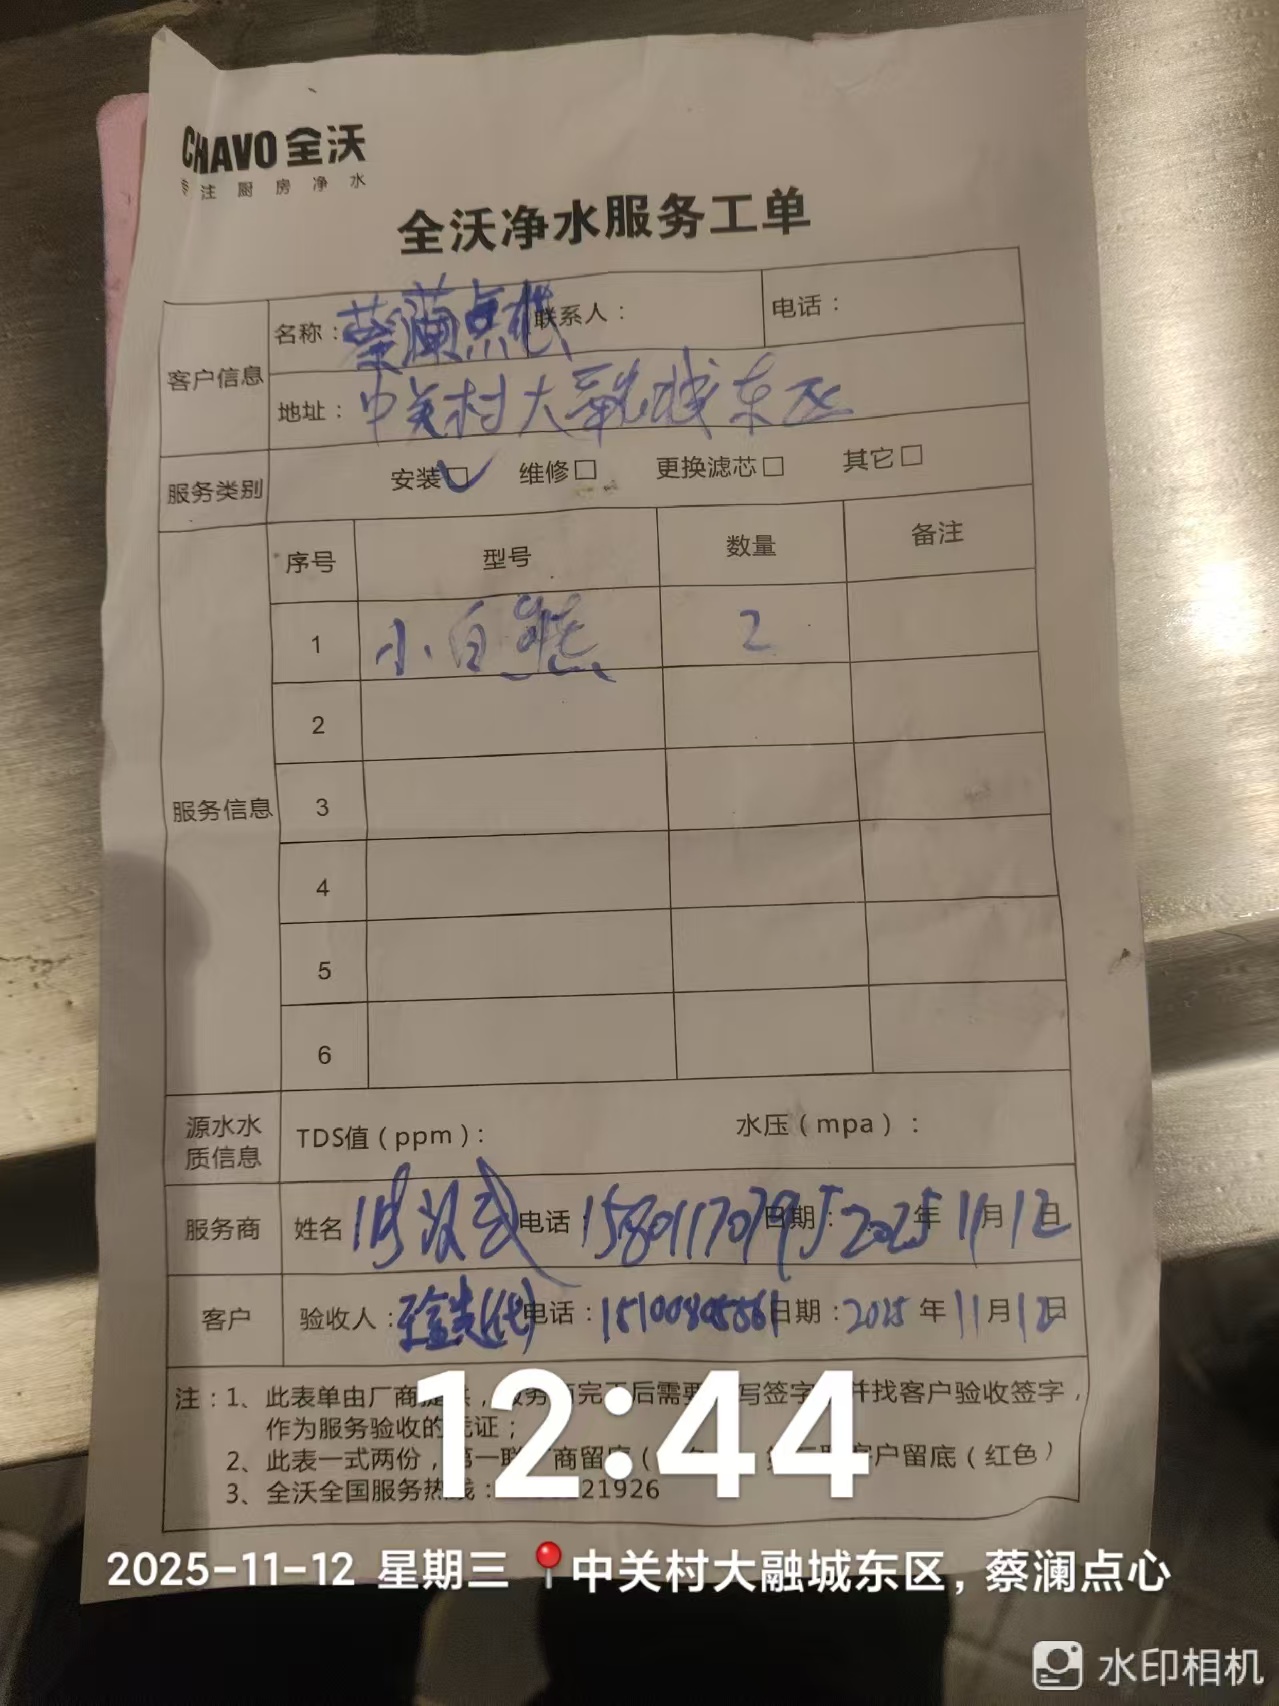 CHAVO 全沃
专注厨房净水
全沃净水服务工单
客户信息
名称：蔡澜点心 联系人： 电话：
地址：中关村大融城东区
服务类别 安装☑ 维修□ 更换滤芯□ 其它□
服务信息
序号 型号 数量 备注
1 小白熊 2
2
3
4
5
6
源水水质信息 TDS值（ppm）： 水压（mpa）：
服务商 姓名 电话：15801170795 日期：2025年11月12日
客户 验收人： 电话：日期：2025年11月12日
注：1、此表单由厂商提供，服务商完工后需要填写签字，并找客户验收签字，
作为服务验收的凭证；
2、此表一式两份，第一联厂商留底 客户留底（红色）
3、全沃全国服务热线： 21926
12:44
2025-11-12 星期三 📍中关村大融城东区，蔡澜点心
水印相机